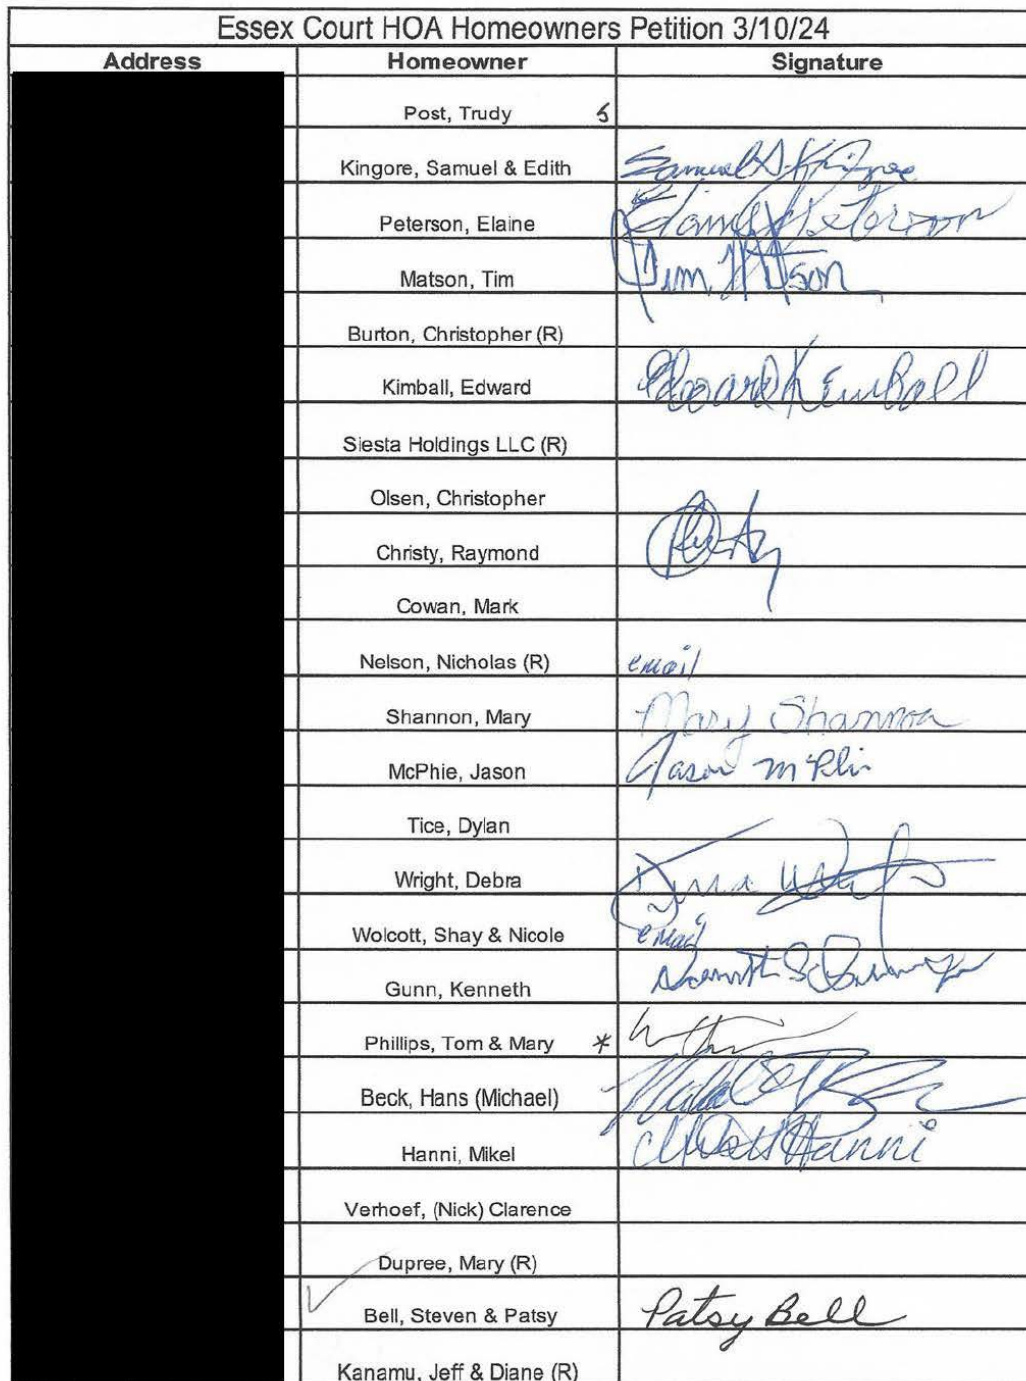 Essex Court HOA Homeowners Petition 3/10/24
Address Homeowner Signature
Post, Trudy 5
Kingore, Samuel & Edith Samuel S. Kingore
Peterson, Elaine Elaine Peterson
Matson, Tim Tim Matson
Burton, Christopher (R)
Kimball, Edward Edward Kimball
Siesta Holdings LLC (R)
Olsen, Christopher
Christy, Raymond
Cowan, Mark
Nelson, Nicholas (R) email
Shannon, Mary Mary Shannon
McPhie, Jason Jason McPhie
Tice, Dylan
Wright, Debra
Wolcott, Shay & Nicole email
Gunn, Kenneth
Phillips, Tom & Mary *
Beck, Hans (Michael)
Hanni, Mikel Hanni
Verhoef, (Nick) Clarence
Dupree, Mary (R)
Bell, Steven & Patsy Patsy Bell
Kanamu, Jeff & Diane (R)